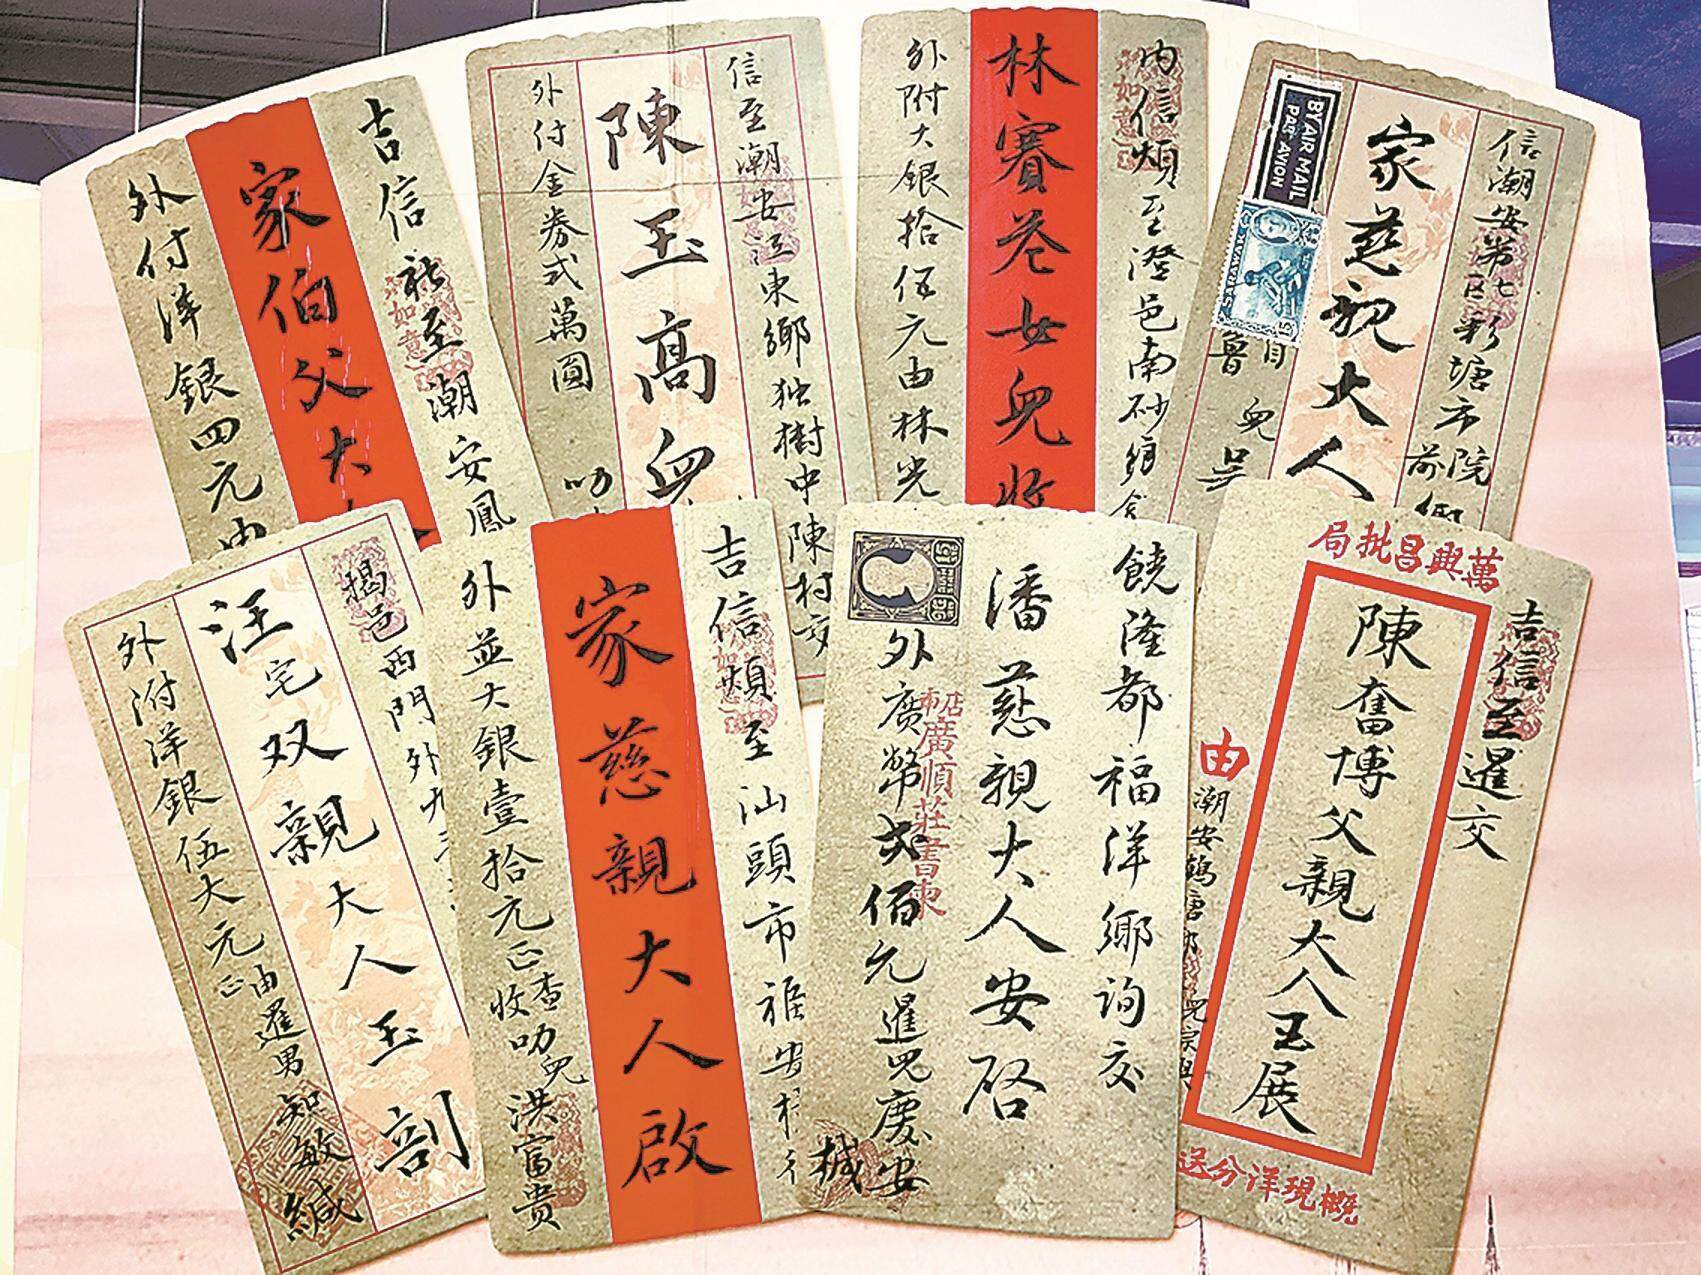 吉信社至潮安鳳
家伯父大
外付洋銀四元由
信至潮安江東鄉独樹中陳村交
陳玉高
外付金券弍萬圓
叻
内信煩至澄邑南砂鄉
如意
林賽
女兒收
外附大銀拾伍元由林光
信潮安第七区彩塘市院前
家慈親大人
BY AIR MAIL
PAR AVION
兒吳
揭邑西門外九
汪宅双親大人玉剖
外附洋銀伍大元正由暹男知敏緘
吉信煩至汕頭市
如意
家慈親大人啟
外並大銀壹拾元正查收叻兒洪富贵
饒隆都福洋鄉詢交
潘慈親大人安啓
外廣幣
佰元暹兒慶安
緘
廣順莊書柬
萬興昌批局
吉信至暹交
陳奮博父親大人玉展
由
潮安鶴塘
兒宗興
概現洋分送